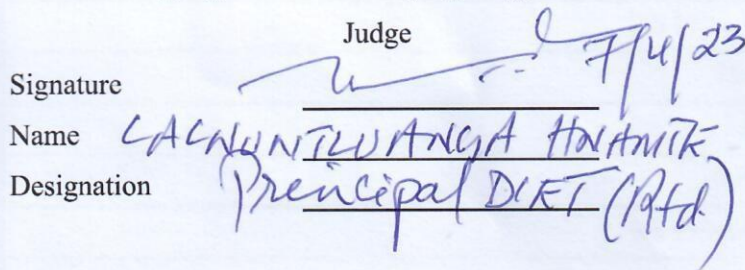 Judge
Signature 7/4/23
Name LALNUNTLUANGA HNAMTE
Designation Principal DIET (Rtd.)